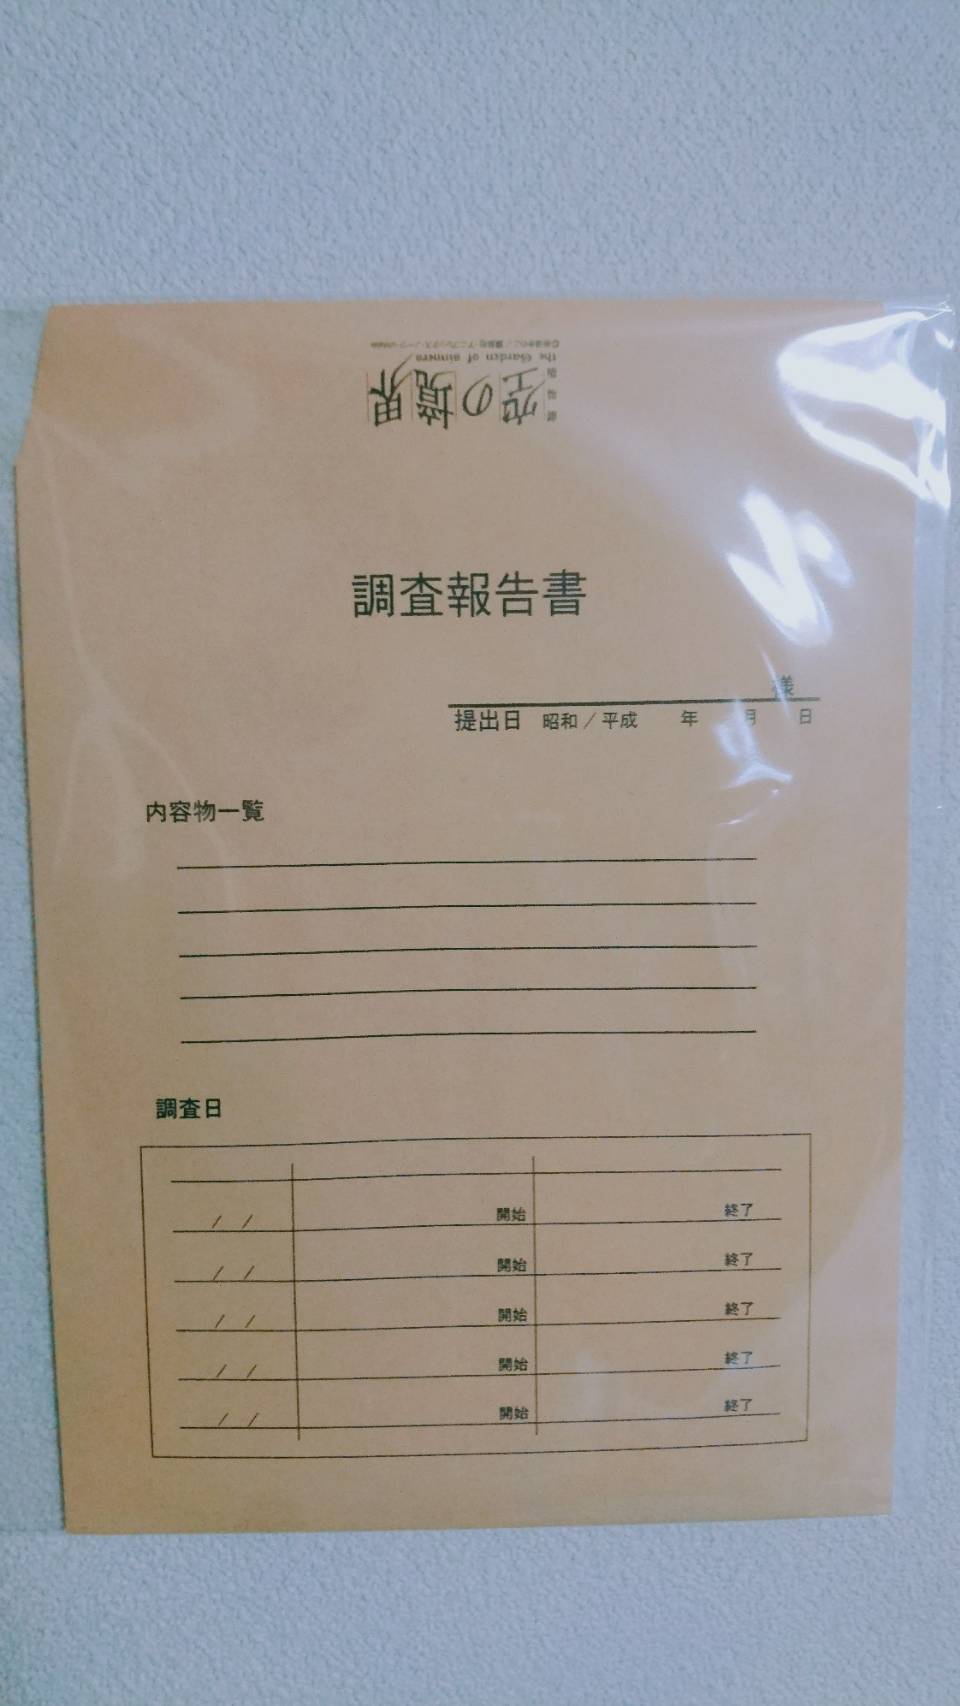 劇場版
空の境界
the Garden of sinners
調査報告書
様
提出日 昭和／平成 年 月 日
内容物一覧
調査日
/ / 開始 終了
/ / 開始 終了
/ / 開始 終了
/ / 開始 終了
/ / 開始 終了